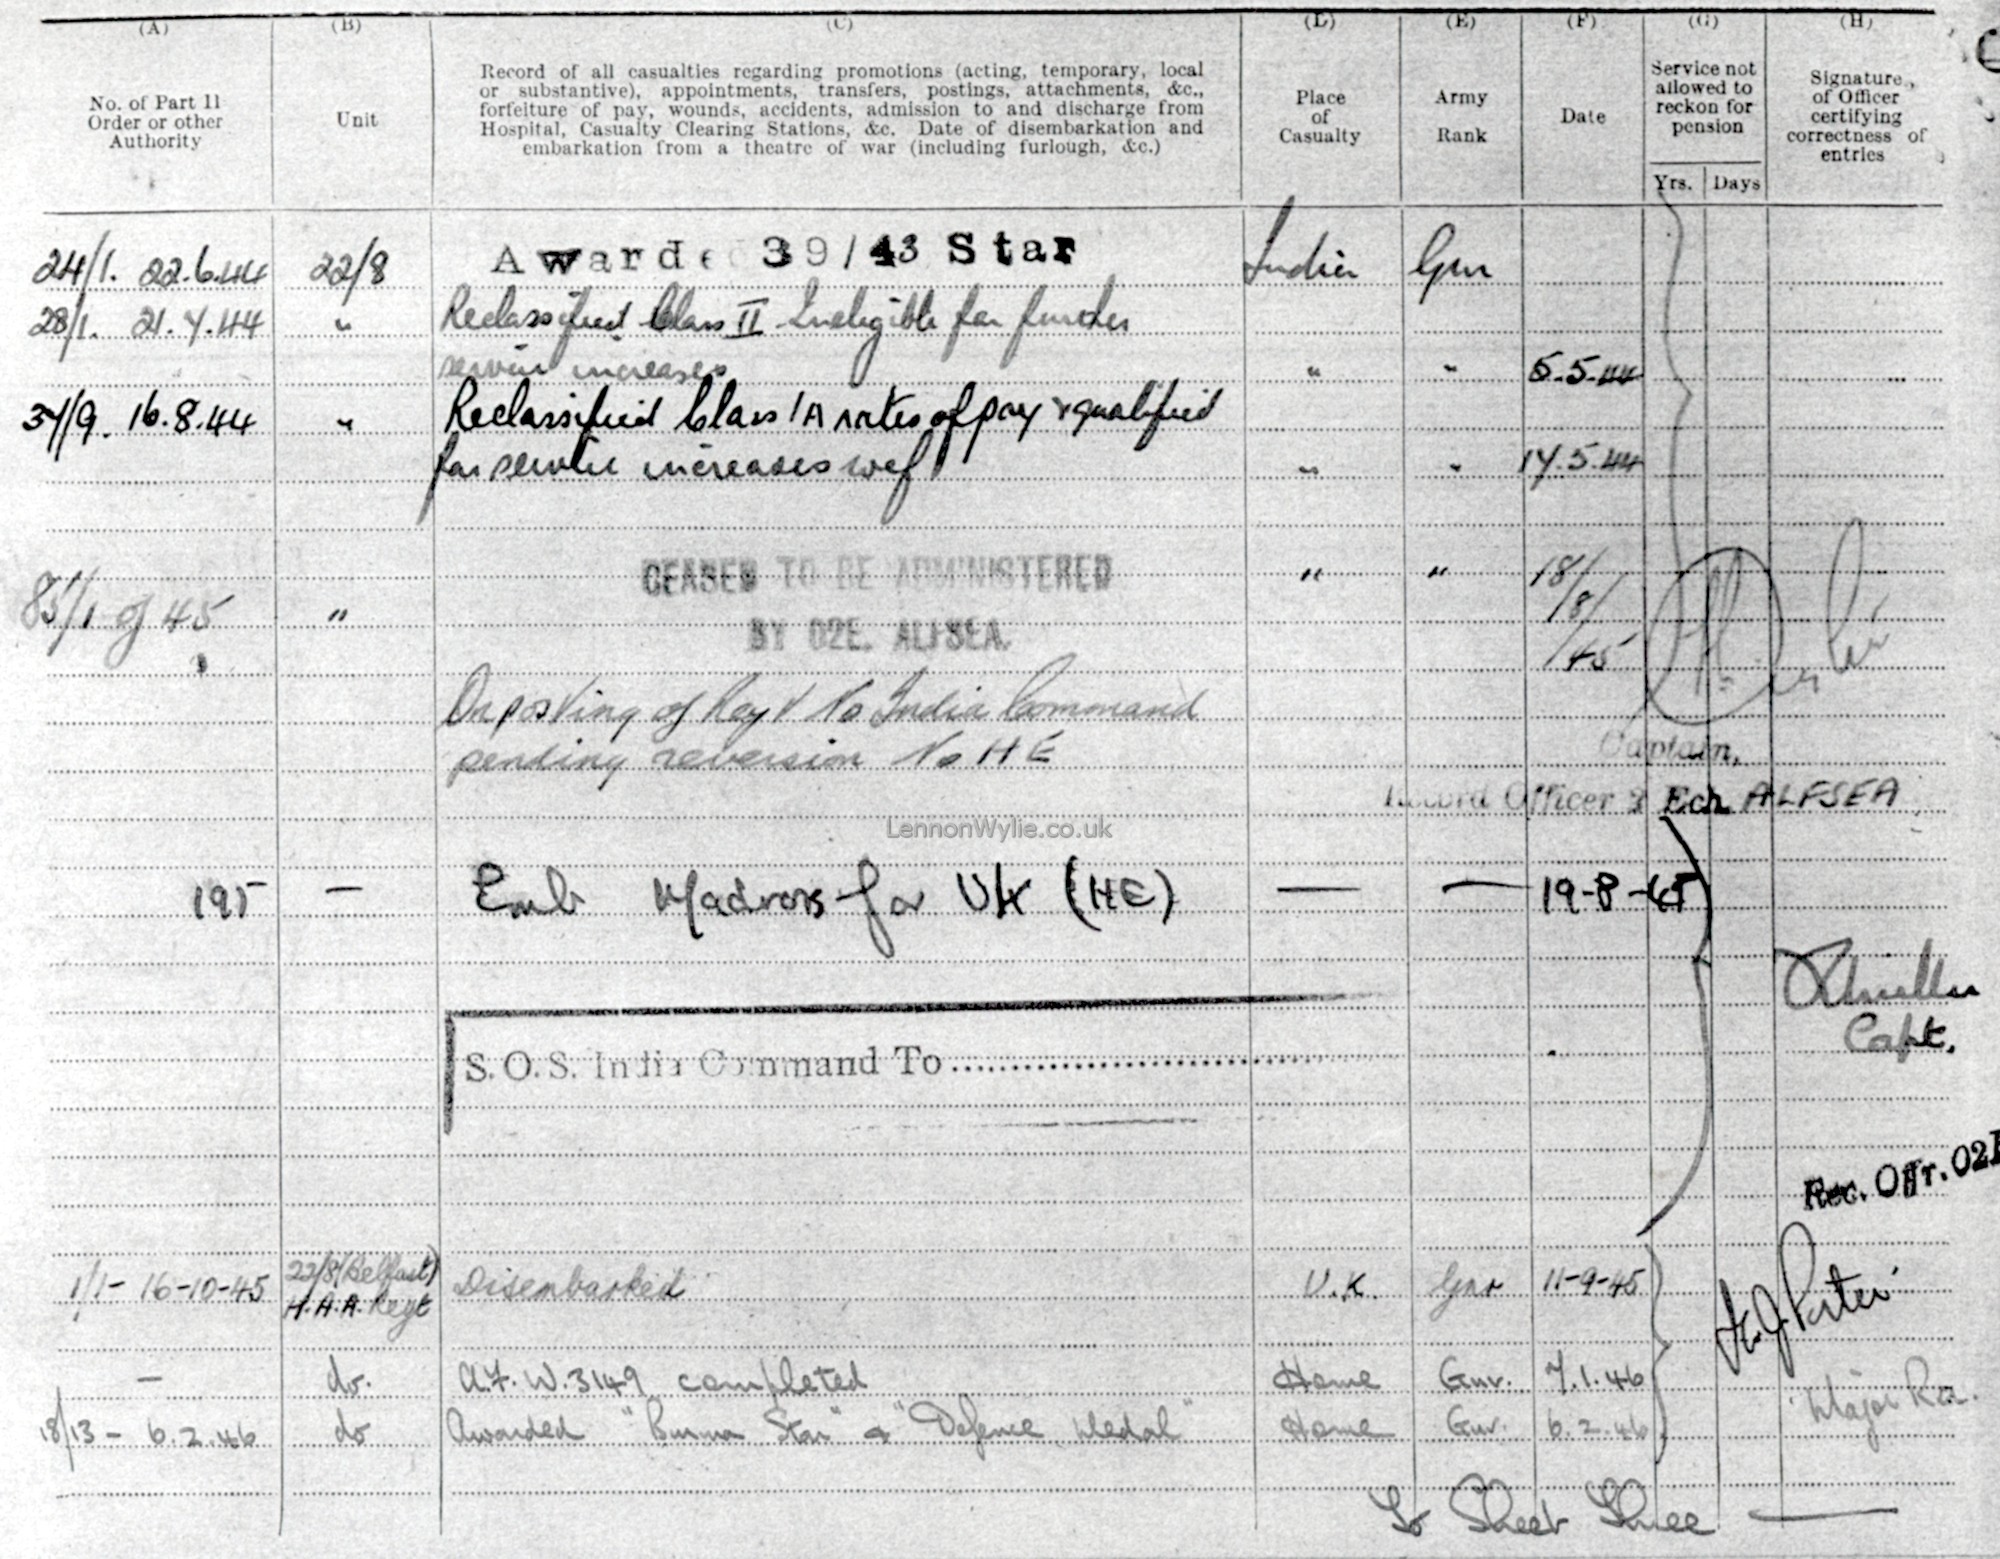 (A) (B) (C) (D) (E) (F) (G) (H)
No. of Part 11
Order or other
Authority
Unit
Record of all casualties regarding promotions (acting, temporary, local
or substantive), appointments, transfers, postings, attachments, &c.,
forfeiture of pay, wounds, accidents, admission to and discharge from
Hospital, Casualty Clearing Stations, &c. Date of disembarkation and
embarkation from a theatre of war (including furlough, &c.)
Place
of
Casualty
Army
Rank
Date
Service not
allowed to
reckon for
pension
Yrs. Days
Signature
of Officer
certifying
correctness of
entries
24/1. 22.6.44 22/8 Awarde 39/43 Star India Gnr
28/1. 21.7.44 " Reclassified Class II Ineligible for further
service increases " " 5.5.44
37/9. 16.8.44 " Reclassified Class 1A rates of pay & qualified
for service increases wef " " 17.5.44
CEASED TO BE ADMINISTERED " " 18/8/45
85/1 of 45 "
BY O2E. ALFSEA.
On posting of Regt to India Command
pending reversion to HE
Captain,
Record Officer 2 Ech ALFSEA
LennonWylie.co.uk
195 — Emb Madras for UK (HE) — — 19-8-45
Capt.
S.O.S. India Command To
Rec. Offr. O2E
1/1- 16-10-45 22/8 (Belfast)
H.A.A. Regt Disembarked U.K. Gnr 11-9-45
— do. A.F. W.3149 completed Home Gnr. 7.1.46
Major R.A.
18/13 - 6.2.46 do Awarded "Burma Star" & "Defence Medal" Home Gnr. 6.2.46
To Sheet Three —